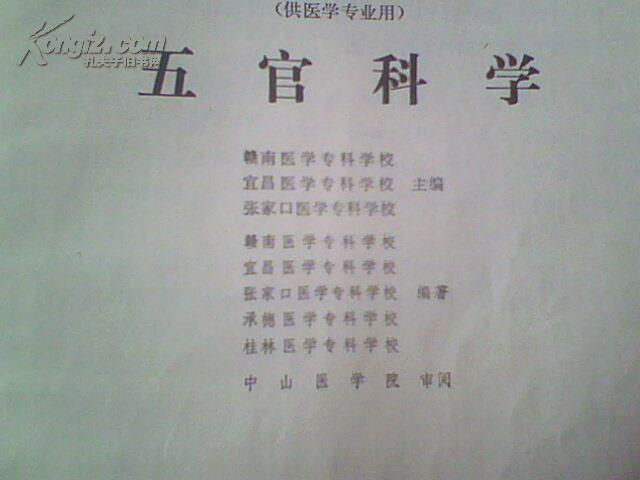 (供医学专业用)
Kongfz.com
孔夫子旧书网
五官科学
赣南医学专科学校
宜昌医学专科学校 主编
张家口医学专科学校
赣南医学专科学校
宜昌医学专科学校
张家口医学专科学校 编著
承德医学专科学校
桂林医学专科学校
中山医学院 审阅